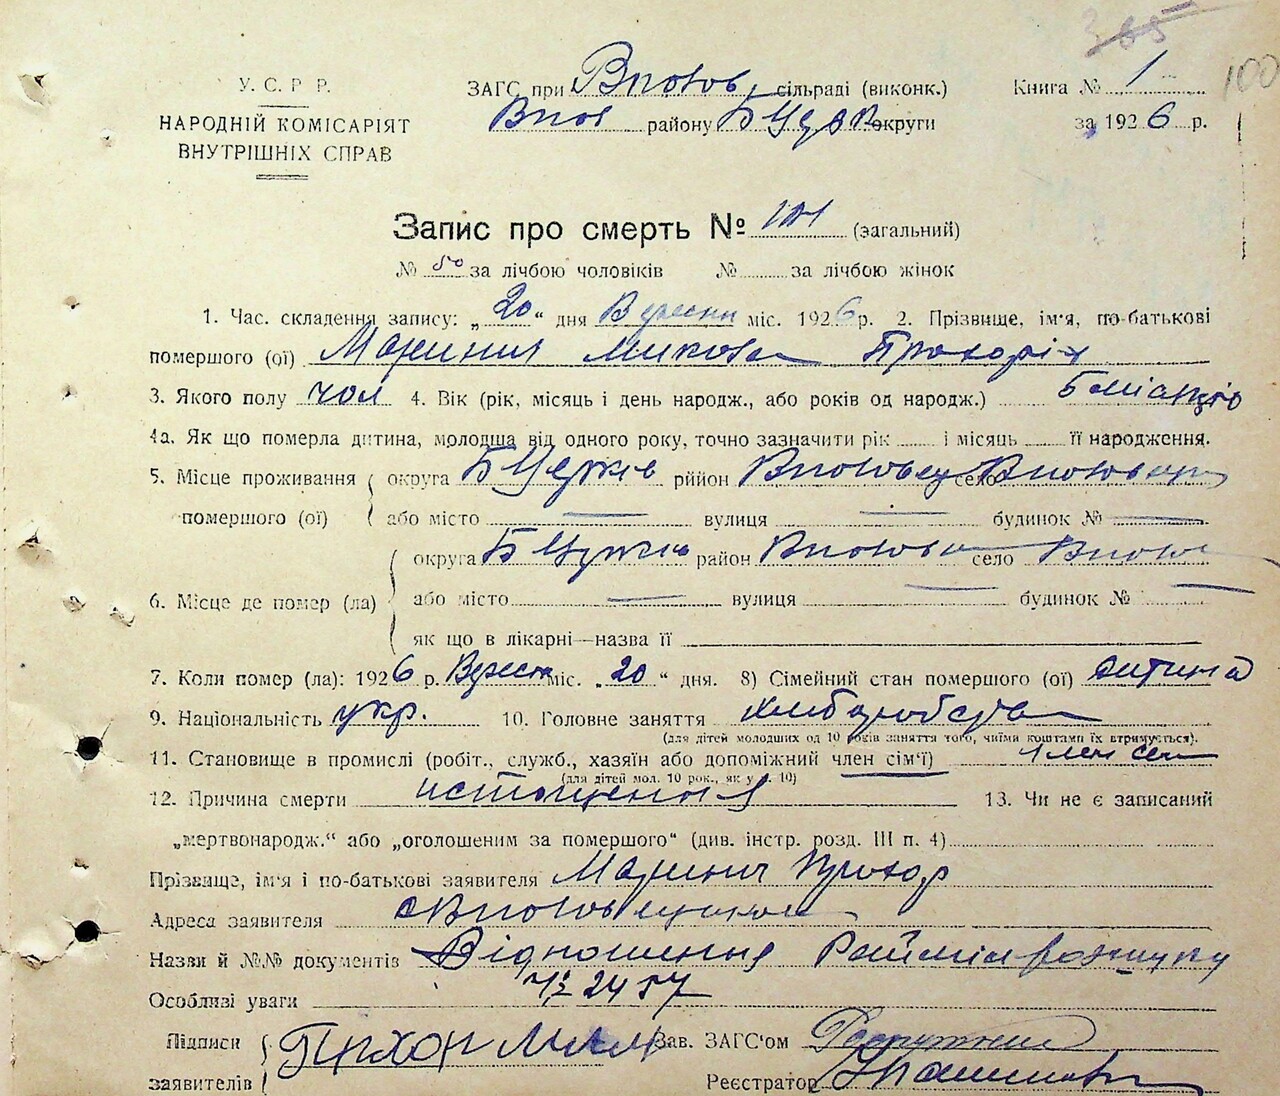 365
100
У. С. Р. Р.
НАРОДНІЙ КОМІСАРІЯТ
ВНУТРІШНІХ СПРАВ
ЗАГС при сільраді (виконк.)
району Б Церк округи
Книга № 1
за 1926 р.
Запис про смерть № 101 (загальний)
№ 50 за лічбою чоловіків № за лічбою жінок
1. Час. складення запису: „20“ дня Вересня міс. 1926 р. 2. Прізвище, ім'я, по-батькові
помершого (ої) Маринич Микола Прохорів
3. Якого полу чол 4. Вік (рік, місяць і день народж., або років од народж.) 5 місяців
4а. Як що померла дитина, молодша від одного року, точно зазначити рік і місяць її народження.
5. Місце проживання помершого (ої) округа Б Церків рйййон село
або місто — вулиця — будинок № —
6. Місце де помер (ла) округа Б Церків район село
або місто — вулиця — будинок № —
як що в лікарні—назва її
7. Коли помер (ла): 1926 р. Вересня міс. „20“ дня. 8) Сімейний стан помершого (ої) дитина
9. Національність укр. 10. Головне заняття хліборобство
(для дітей молодших од 10 років заняття того, чиїми коштами їх втримується).
11. Становище в промислі (робіт., служб., хазяїн або допоміжний член сім'ї) член сем
(для дітей мол. 10 рок., як у п. 10)
12. Причина смерти истощения 13. Чи не є записаний
„мертвонародж.“ або „оголошеним за помершого“ (див. інстр. розд. III п. 4)
Прізвище, ім'я і по-батькові заявителя Маринич Прохор
Адреса заявителя
Назви й №№ документів Відношення Райміліц розшуку
№ 2457
Особливі уваги
Підписи заявителів Прохор Зав. ЗАГС'ом
Реєстратор